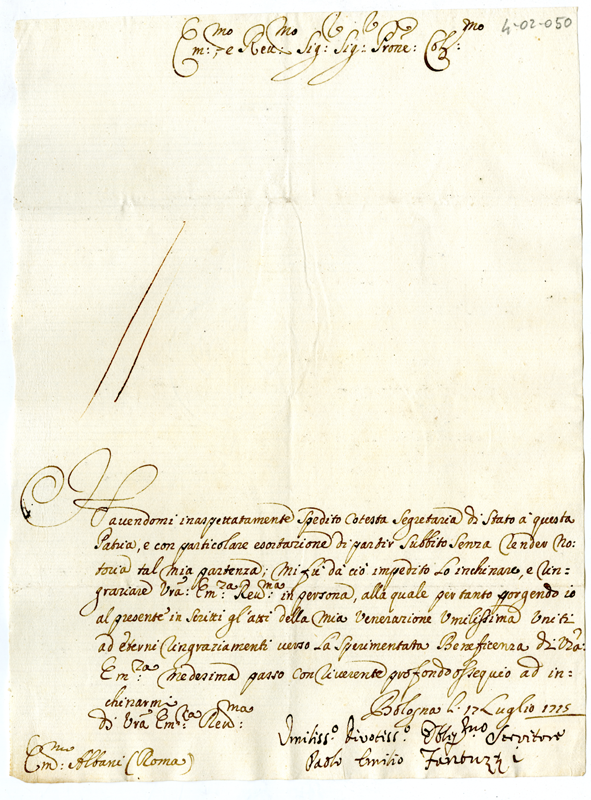 4-02-050
Em:mo e Reu:mo Sig: Sig: Prõne: Col:mo
Havendomi inaspettatamente Spedito Cotesta Segretaria di Stato à questa
Patria, e con particolare esortazione di partir Subbito Senza render No-
toria tal mia partenza; Mi fù da ciò impedito lo inchinare, e rin-
graziare Vra: Em:za Reu:ma in persona, alla quale per tanto porgendo io
al presente in Scritti gl'atti della mia Venerazione Umilissima Uniti
ad eterni ringraziamenti verso la Sperimentata Beneficenza di Vrã:
Em:za medesima passo con riverente profondo ossequio ad in-
chinarmi
Di Vrã Em:za Reu:ma
Bologna li 17 Luglio 1715
Umiliss:o Divotiss:o Oblig:mo Servitore
Paolo Emilio Fantuzzi
Em:mo Albani (Roma)